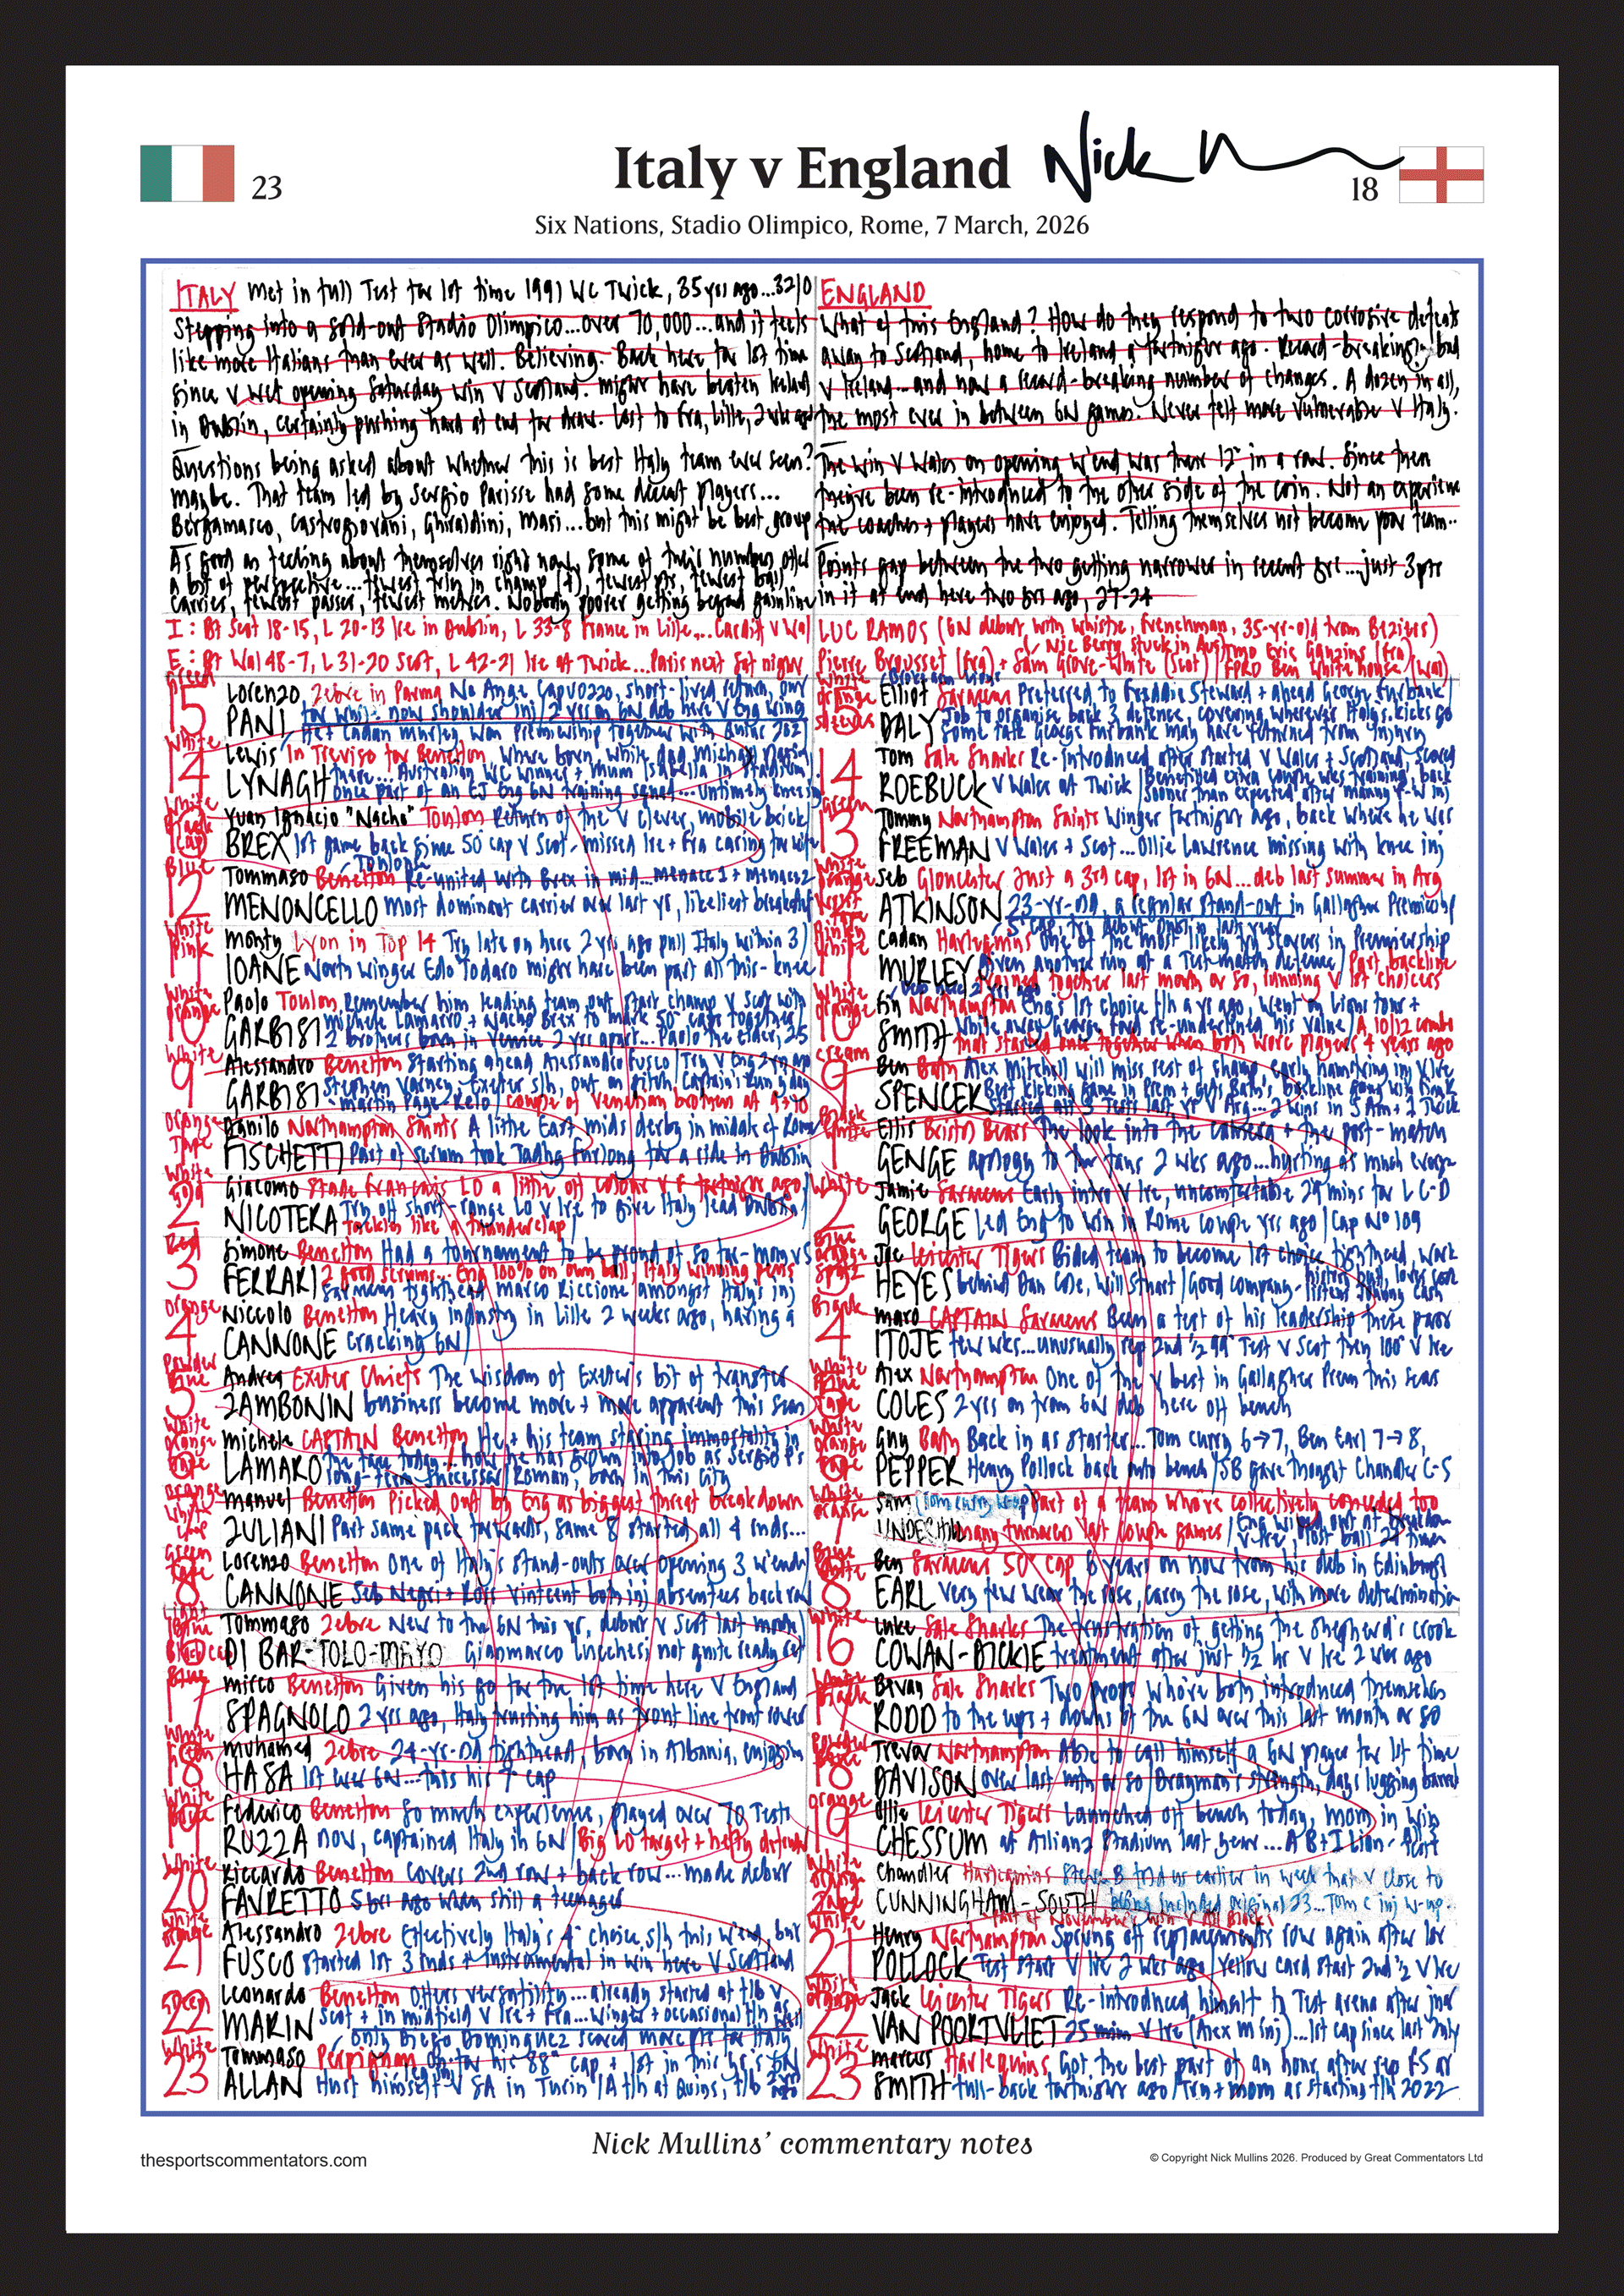 23
Italy v England
Nick
18
Six Nations, Stadio Olimpico, Rome, 7 March, 2026
ITALY met in full Test for 1st time 1991 WC Twick, 35 yrs ago...32/0
Stepping into a sold-out Stadio Olimpico...over 70,000...and it feels
like more Italians than ever as well. Believing. Back here for 1st time
since v wet opening Saturday win v Scotland. Might have beaten Ireland
in Dublin, certainly pushing hard at end for draw. Lost to Fra, Lille, 2 wks ago
Questions being asked about whether this is best Italy team ever seen?
maybe. That team led by Sergio Parisse had some decent players...
Bergamasco, Castrogiovani, Ghiraldini, Masi...but this might be best group
As good as feeling about themselves right now, some of their numbers offer
a bit of perspective...fewest tries in champ (4), fewest pts, fewest ball
carries, fewest passes, fewest metres. Nobody poorer getting beyond gainline
I: Bt Scot 18-15, L 20-13 Ire in Dublin, L 33-8 France in Lille...Cardiff v Wal
E: Bt Wal 48-7, L 31-20 Scot, L 42-21 Ire at Twick...Paris next Sat night
ENGLAND
What of this England? How do they respond to two corrosive defeats
away to Scotland, home to Ireland a fortnight ago. Record-breaking bad
v Ireland...and now a record-breaking number of changes. A dozen in all,
the most ever in between 6N games. Never felt more vulnerable v Italy.
The win v Wales on opening w'end was their 12th in a row. Since then
they've been re-introduced to the other side of the coin. Not an experience
the coaches + players have enjoyed. Telling themselves not become poor team..
Points gap between the two getting narrower in recent yrs...just 3pts
in it at end here two yrs ago, 27-24
LUC RAMOS (6N debut with whistle, Frenchman, 35-yr-old from Beziers)
Nic Berry stuck in Aus
Pierre Brousset (Fra) + Sam Grove-White (Scot) TMO Eric Gauzins (Fra)
FPRO Ben Whitehouse (Wal)
15 Lorenzo Zebre in Parma No Ange Capuozzo, short-lived return, our
PANI for while now shoulder inj / 2 yrs on 6N deb here v Eng wing
White
14 Lewis In Treviso for Benetton Where born while dad Michael playing
LYNAGH there... Australian WC winner + mum Isabella in stadium
once part of an EJ Eng 6N training squad...untimely knee inj
Juan Ignacio "Nacho" Toulon Return of the v clever, mobile brick
BREX 1st game back since 50 cap v Scot-missed Ire + Fra caring for wife
Blue
12 Tommaso Benetton Toulon Re-united with Brex in mid...menace 1 + menace 2
MENONCELLO most dominant carrier over last yr, likeliest breakdef
White Pink
11 Monty Lyon in Top 14 Try late on here 2 yrs ago pull Italy within 3
IOANE North winger Edo Todaro might have been part all this-knee
White Orange
10 Paolo Toulon Remember him leading team out start champ v Scot with
GARBISI Michele Lamaro + Nacho Brex to mark 50 caps together
2 brothers born in Venice 2 yrs apart...Paolo the Elder, 25
White
9 Alessandro Benetton Starting ahead Alessandro Fusco / Try v Eng 2 yrs ago
GARBISI Stephen Varney, Exeter s/h, out on pitch, Captain's Run y'day
Martin Page-Relo / couple of Venetian brothers at 9+10
Orange Tape
Danilo Northampton Saints A little East mids derby in middle of Rome
FISCHETTI Part of scrum took Tadhg Furlong for a ride in Dublin
White
2 Giacomo Stade Francais LO a little off colour v F fortnight ago
NICOTERA Try off short-range LO v Ire to give Italy lead Dublin
Tackles like a thunderclap
Red
3 Simone Benetton Had a tournament to be proud of so far-mom v S
FERRARI 2 good scrums...Eng 100% on own ball, Italy winning pens
Saracens tighthead Marco Riccione amongst Italy's inj
Orange
4 Niccolo Benetton Heavy industry in Lille 2 weeks ago, having a
CANNONE cracking 6N
Powder Blue
5 Andrea Exeter Chiefs The wisdom of Exeter's bit of transfer
ZAMBONIN business become more + more apparent this seas
White Orange Tape
6 Michele CAPTAIN Benetton He + his team staring immortality in
LAMARO the face today...how he has grown into job as Sergio P's
long-term successor / Roman, born in this city
Orange White Cap
Manuel Benetton Picked out by Eng as biggest threat breakdown
ZULIANI Part same pack forwards, same 8 started all 4 rnds...
Green Tape
8 Lorenzo Benetton One of Italy's stand-outs over opening 3 w'ends
CANNONE Seb Negri + Ross Vintcent both inj absentees back row
Light Blue
16 Tommaso Zebre New to the 6N this yr, debut v Scot last month
DI BARTOLOMAYO Gianmarco Lucchesi not quite ready yet
Blue
17 Mirco Benetton Given his go for the 1st time here v England
SPAGNOLO 2 yrs ago, Italy trusting him as front line front rower
White
18 Muhamed Zebre 24-yr-old tighthead, born in Albania, enjoying
HASA 1st ever 6N...this his 7th cap
White Blue
19 Federico Benetton So much experience, played over 70 Tests
RUZZA now, captained Italy in 6N / Big LO target + hefty defender
White
20 Riccardo Benetton Covers 2nd row + back row...made debut
FAVRETTO 5 yrs ago when still a teenager
White Orange
21 Alessandro Zebre Effectively Italy's 4th choice s/h this w'end, but
FUSCO Started 1st 3 rnds + instrumental in win here v Scotland
Green
22 Leonardo Benetton Offers versatility...already started at f/b v
MARIN Scot + in midfield v Ire + Fra...Winger + occasional f/h as well
only Diego Dominguez scored more pts for Italy
White
23 Tommaso Perpignan On for his 88th cap + 1st in this yr's 6N
ALLAN Hurt himself v SA in Turin / A f/h at Quins, f/b 2 yrs ago
White Orange Sleeves
Elliot Saracens Preferred to Freddie Steward + ahead George Furbank
DALY Job to organise back 3 defence, covering wherever Italy's kicks go
Some talk George Furbank may have returned from injury
14 Tom Sale Sharks Re-introduced after started v Wales + Scotland, scored
ROEBUCK v Wales at Twick / Benefitted extra couple wks training, back
sooner than expected after manny F-W inj
Green
13 Tommy Northampton Saints Winger fortnight ago, back where he was
FREEMAN v Wales + Scot...Ollie Lawrence missing with knee inj
White Orange Wrist
12 Seb Gloucester Just a 3rd cap, 1st in 6N...deb last summer in Arg
ATKINSON 23-yr-old, a regular stand-out in Gallagher Premiership
5th cap, try debut Dublin last year
Cadan Harlequins One of the most likely try scorers in Premiership
MURLEY Given another run at a Test-match defence / Part backline
trained together last month or so, running v 1st choicers
deb here 2 yrs ago
White Orange
10 Fin Northampton Eng's 1st choice f/h a yr ago, went on Lions tour +
SMITH While away George Ford re-underlined his value / A 10/12 combo
that started once together when both Worc players 4 years ago
Cream
9 Ben Bath Alex Mitchell will miss rest of champ, early hamstring inj v Ire
SPENCER Best kicking game in Prem + gets Bath's backline going with pink
Started all 3 Tests last yr v Arg...2 wins in S Am + 1 Twick
Black White
1 Ellis Bristol Bears The look into the camera + the post-match
GENGE apology to the fans 2 wks ago...hurting as much everyone
White
2 Jamie Saracens Early intro v Ire, uncomfortable 29 mins for L C-D
GEORGE Led Eng to win in Rome couple yrs ago / Cap No 109
Joe Leicester Tigers Bided team to become 1st choice tighthead, work
HEYES behind Dan Cole, Will Stuart / Good company-history buff, loves cook
listens Johnny Cash
Black
4 Maro CAPTAIN Saracens Been a test of his leadership these past
ITOJE few wks...unusually rep 2nd ½ 99th Test v Scot then 100th v Ire
White Blue Tape
5 Alex Northampton One of the v best in Gallagher Prem this seas
COLES 2 yrs on from 6N deb here off bench
White Orange Tape
6 Guy Bath Back in as starter...Tom Curry 6→7, Ben Earl 7→8,
PEPPER Henry Pollock back onto bench / SB gave thought Chandler C-S
White Orange
7 Sam (Tom Curry w-up) Part of a team where collectively conceded too
UNDERHILL many turnovers last couple games / Eng wiped out at breakdown
v Ire, lost ball 24 times
Blue White
8 Ben Saracens 50th cap 6 years on now from his deb in Edinburgh
EARL Very few wear the rose, carry the rose, with more determination
White
16 Luke Sale Sharks The frustration of getting the shepherd's crook
COWAN-DICKIE treatment after just ½ hr v Ire 2 wks ago
White Black
17 Bevan Sale Sharks Two props who've both introduced themselves
RODD to the ups + downs of the 6N over this last month or so
Powder Blue
18 Trevor Northampton Able to call himself a 6N player for 1st time
DAVISON over last mth or so / Drayman's strength, days lugging barrel
Orange
19 Ollie Leicester Tigers Launched off bench today, mom in win
CHESSUM at Allianz Stadium last year...A B+I Lion-1st Test
White Orange Tape
Chandler Harlequins Steve B told us earlier in week that v close to
CUNNINGHAM-SOUTH being included original 23...Tom C inj w-up.
Part of November's win v All Blacks
White
21 Henry Northampton Sprung off replacements row again after 1st
POLLOCK Test start v Ire 2 wks ago / Yellow card start 2nd ½ v Ire
White Orange
22 Jack Leicester Tigers Re-introduced himself to Test arena after inj
VAN POORTVLIET 25 min v Ire (Alex M inj)...1st cap since last July
White
23 Marcus Harlequins Got the best part of an hour after rep FS at
SMITH full-back fortnight ago / Try + mom as starting f/h 2022
Nick Mullins' commentary notes
thesportscommentators.com
© Copyright Nick Mullins 2026. Produced by Great Commentators Ltd